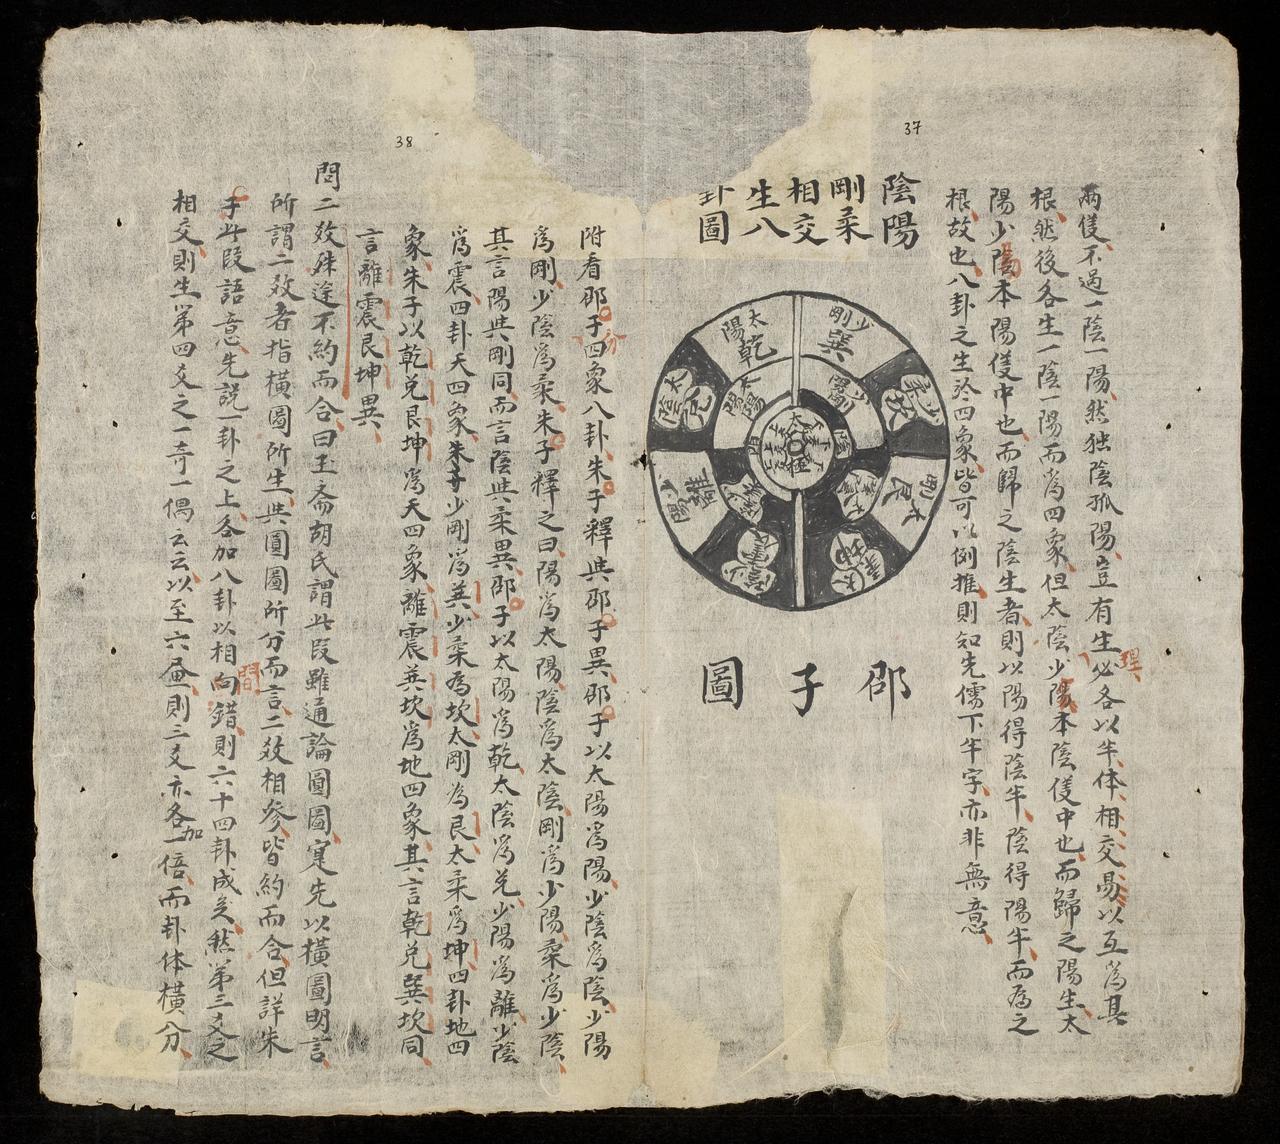 37
兩儀不過一陰一陽然独陰孤陽豈有生理必各以半体相交易以互爲其
根然後各生一陰一陽而爲四象但太陰少陽本陰儀中也而歸之陽生太
陽少陰本陽儀中也而歸之陰生者則以陽得陰半陰得陽半而爲之
根故也八卦之生於四象皆可以例推則知先儒下半字亦非無意
陰陽
剛柔
相交
生八
卦圖
少剛 巽
太陽 乾
少柔 坎
太剛 艮
太柔 坤
少陰 震
少陽 離
太陰 兌
太極
邵子圖
附看邵子四象八卦朱子釋與邵子異邵子以太陽爲陽少陰爲陰少陽
爲剛少陰爲柔朱子釋之曰陽爲太陽陰爲太陰剛爲少陽柔爲少陰
其言陽與剛同而言陰與柔異邵子以太陽爲乾太陰爲兌少陽爲離少陰
爲震四卦天四象朱子少剛爲巽少柔爲坎太剛爲艮太柔爲坤四卦地四
象朱子以乾兌艮坤爲天四象離震巽坎爲地四象其言乾兌巽坎同
言離震艮坤異
38
問二效殊途不約而合曰玉斋胡氏謂此段雖通論圓圖寔先以橫圖明言
所謂二效者指橫圖所生與圓圖所分而言二效相參皆約而合但詳朱
子此段語意先說一卦之上各加八卦以相間錯則六十四卦成矣然第三爻之
相交則生第四爻之一奇一偶云云以至六畫則三爻亦各加一倍而卦体橫分